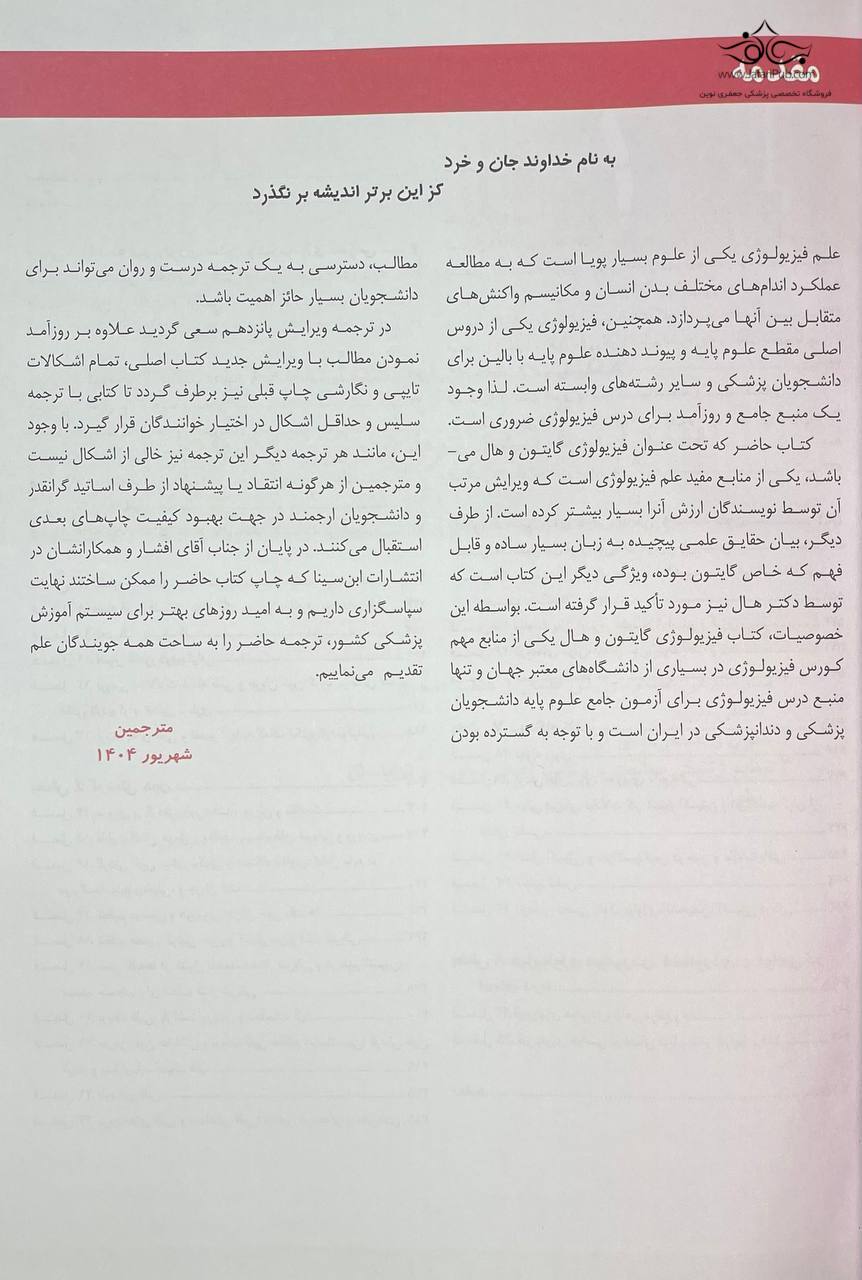 مقدمه
www.JafariPub.com
فروشگاه تخصصی پزشکی جعفری نوین
به نام خداوند جان و خرد
کز این برتر اندیشه بر نگذرد
علم فیزیولوژی یکی از علوم بسیار پویا است که به مطالعه
عملکرد اندام‌های مختلف بدن انسان و مکانیسم واکنش‌های
متقابل بین آنها می‌پردازد. همچنین، فیزیولوژی یکی از دروس
اصلی مقطع علوم پایه و پیوند دهنده علوم پایه با بالین برای
دانشجویان پزشکی و سایر رشته‌های وابسته است. لذا وجود
یک منبع جامع و روزآمد برای درس فیزیولوژی ضروری است.
کتاب حاضر که تحت عنوان فیزیولوژی گایتون و هال می-
باشد، یکی از منابع مفید علم فیزیولوژی است که ویرایش مرتب
آن توسط نویسندگان ارزش آنرا بسیار بیشتر کرده است. از طرف
دیگر، بیان حقایق علمی پیچیده به زبان بسیار ساده و قابل
فهم که خاص گایتون بوده، ویژگی دیگر این کتاب است که
توسط دکتر هال نیز مورد تأکید قرار گرفته است. بواسطه این
خصوصیات، کتاب فیزیولوژی گایتون و هال یکی از منابع مهم
کورس فیزیولوژی در بسیاری از دانشگاه‌های معتبر جهان و تنها
منبع درس فیزیولوژی برای آزمون جامع علوم پایه دانشجویان
پزشکی و دندانپزشکی در ایران است و با توجه به گسترده بودن
مطالب، دسترسی به یک ترجمه درست و روان می‌تواند برای
دانشجویان بسیار حائز اهمیت باشد.
در ترجمه ویرایش پانزدهم سعی گردید علاوه بر روزآمد
نمودن مطالب با ویرایش جدید کتاب اصلی، تمام اشکالات
تایپی و نگارشی چاپ قبلی نیز برطرف گردد تا کتابی با ترجمه
سلیس و حداقل اشکال در اختیار خوانندگان قرار گیرد. با وجود
این، مانند هر ترجمه دیگر این ترجمه نیز خالی از اشکال نیست
و مترجمین از هرگونه انتقاد یا پیشنهاد از طرف اساتید گرانقدر
و دانشجویان ارجمند در جهت بهبود کیفیت چاپ‌های بعدی
استقبال می‌کنند. در پایان از جناب آقای افشار و همکارانشان در
انتشارات ابن‌سینا که چاپ کتاب حاضر را ممکن ساختند نهایت
سپاسگزاری داریم و به امید روزهای بهتر برای سیستم آموزش
پزشکی کشور، ترجمه حاضر را به ساحت همه جویندگان علم
تقدیم می‌نماییم.
مترجمین
شهریور ۱۴۰۴